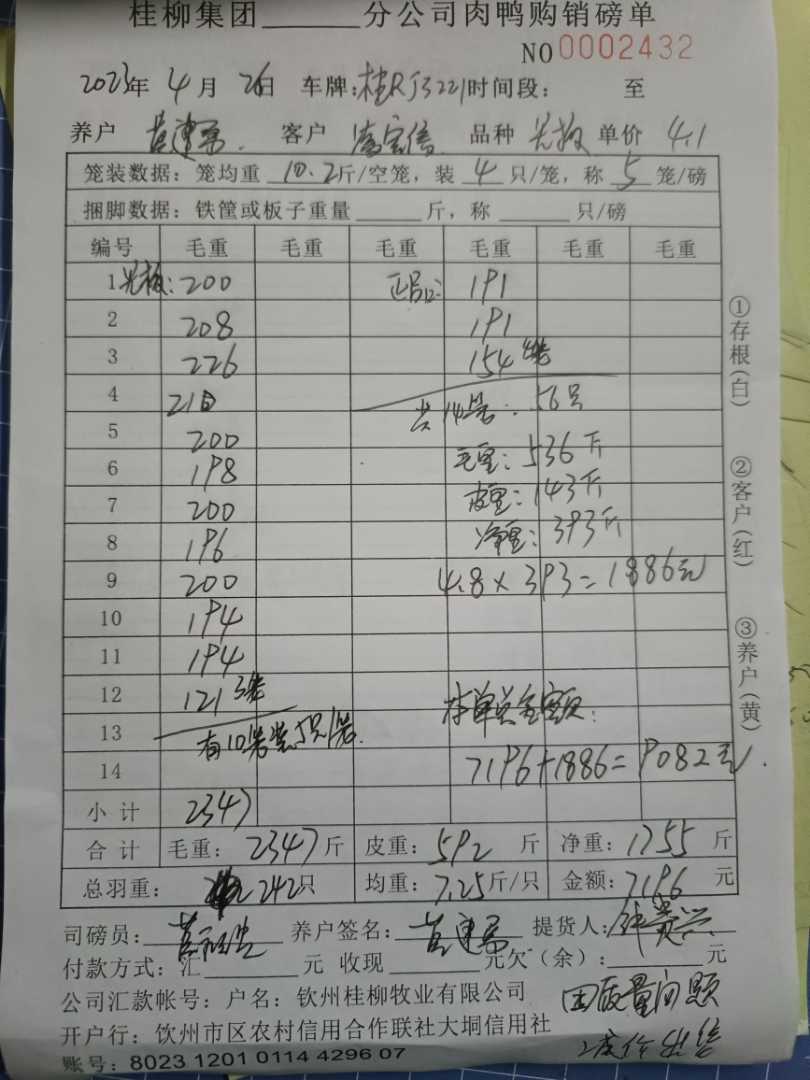 桂柳集团______分公司肉鸭购销磅单
NO 0002432
2023年 4月 26日 车牌:桂RJ3221 时间段: 至
养户 黄建 客户 宝信 品种 光板 单价 4.1
笼装数据:笼均重 10.2斤/空笼,装 4 只/笼,称 5 笼/磅
捆脚数据:铁筐或板子重量______斤,称______只/磅
编号 毛重 毛重 毛重 毛重 毛重 毛重
1 光板:200 正品: 191
2 208 191
3 226 154 4笼
4 210 共14笼: 56只
5 200
6 198 毛重: 536斤
7 200 皮重: 143斤
8 196 净重: 393斤
9 200 4.8×393=1886元
10 194
11 194
12 121 3笼 本单总金额:
13 有10笼装5只/笼.
14 7196+1886=9082元.
小计 2347
合计 毛重: 2347斤 皮重: 592斤 净重: 1755斤
总羽重: 242只 均重: 7.25斤/只 金额: 7196元
司磅员: 养户签名: 黄建 提货人: 钟贵兴
付款方式:汇______元 收现______元欠(余):______元
公司汇款帐号:户名:钦州桂柳牧业有限公司
因质量问题
开户行:饮州市区农村信用合作联社大垌信用社
账号:8023 1201 0114 4296 07
①存根(白)
②客户(红)
③养户(黄)